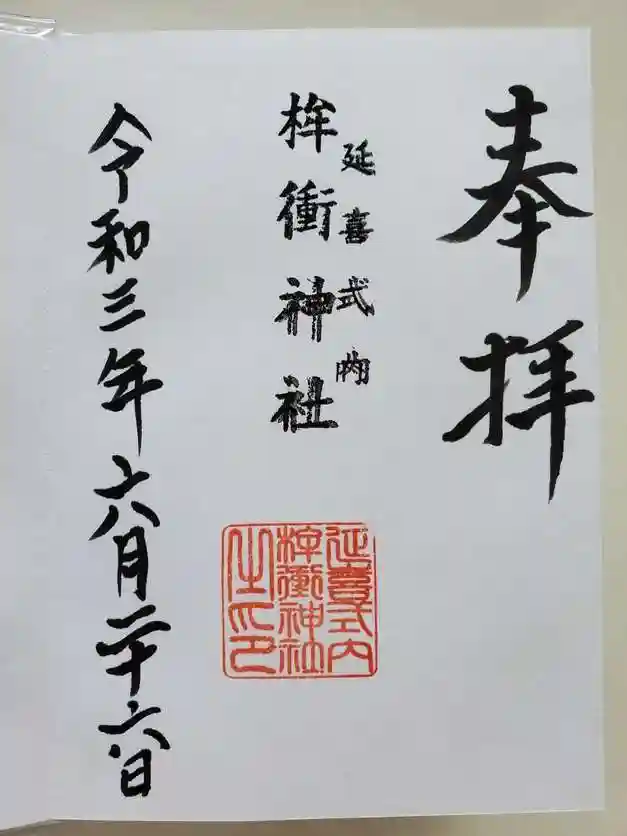 奉拝
延喜式内
桙衝神社
令和三年六月二十六日
延喜式内
桙衝神社
之印